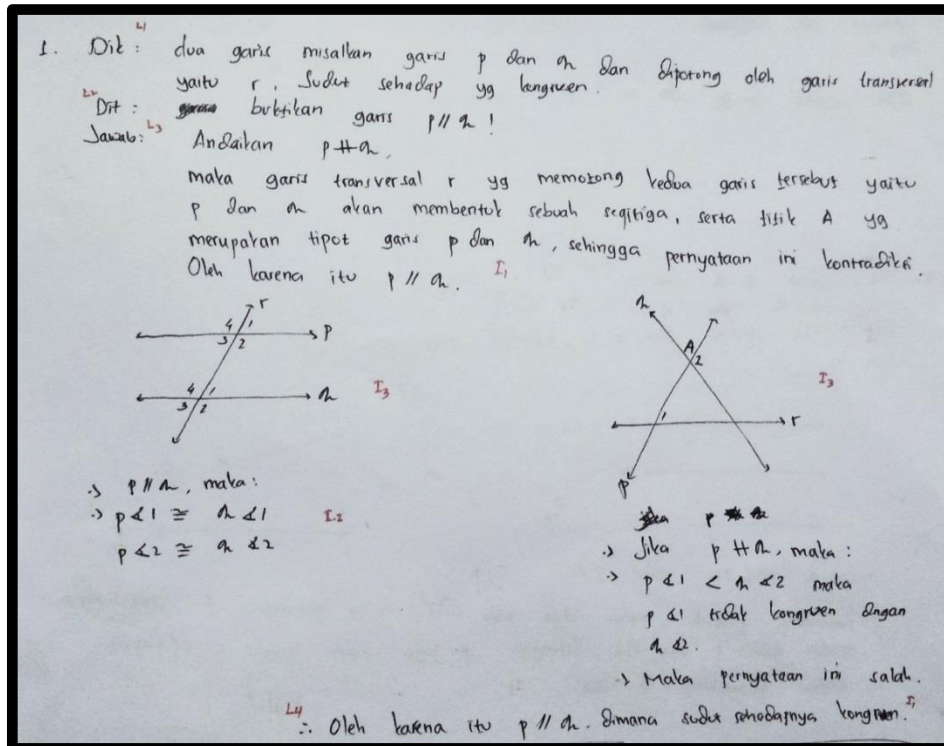 L1
1. Dik : dua garis misalkan garis p dan q dan dipotong oleh garis transversal
yaitu r. Sudut sehadap yg kongruen.
L2
Dit : buktikan garis p // q !
Jawab: L3 Andaikan p ∦ q,
maka garis transversal r yg memotong kedua garis tersebut yaitu
p dan q akan membentuk sebuah segitiga, serta titik A yg
merupakan tipot garis p dan q, sehingga pernyataan ini kontradiksi.
Oleh karena itu p // q. I1
r
4 1 p
3 2
4 1 q
3 2
I3
-> p // q, maka:
-> p∡1 ≅ q∡1 I2
p∡2 ≅ q∡2
q
A
2
1 r
p
I3
jika p
-> Jika p ∦ q, maka :
-> p∡1 < q∡2 maka
p∡1 tidak kongruen dngan
q∡2.
-> Maka pernyataan ini salah.
L4
∴ Oleh karena itu p // q. dimana sudut sehadapnya kongruen. I1